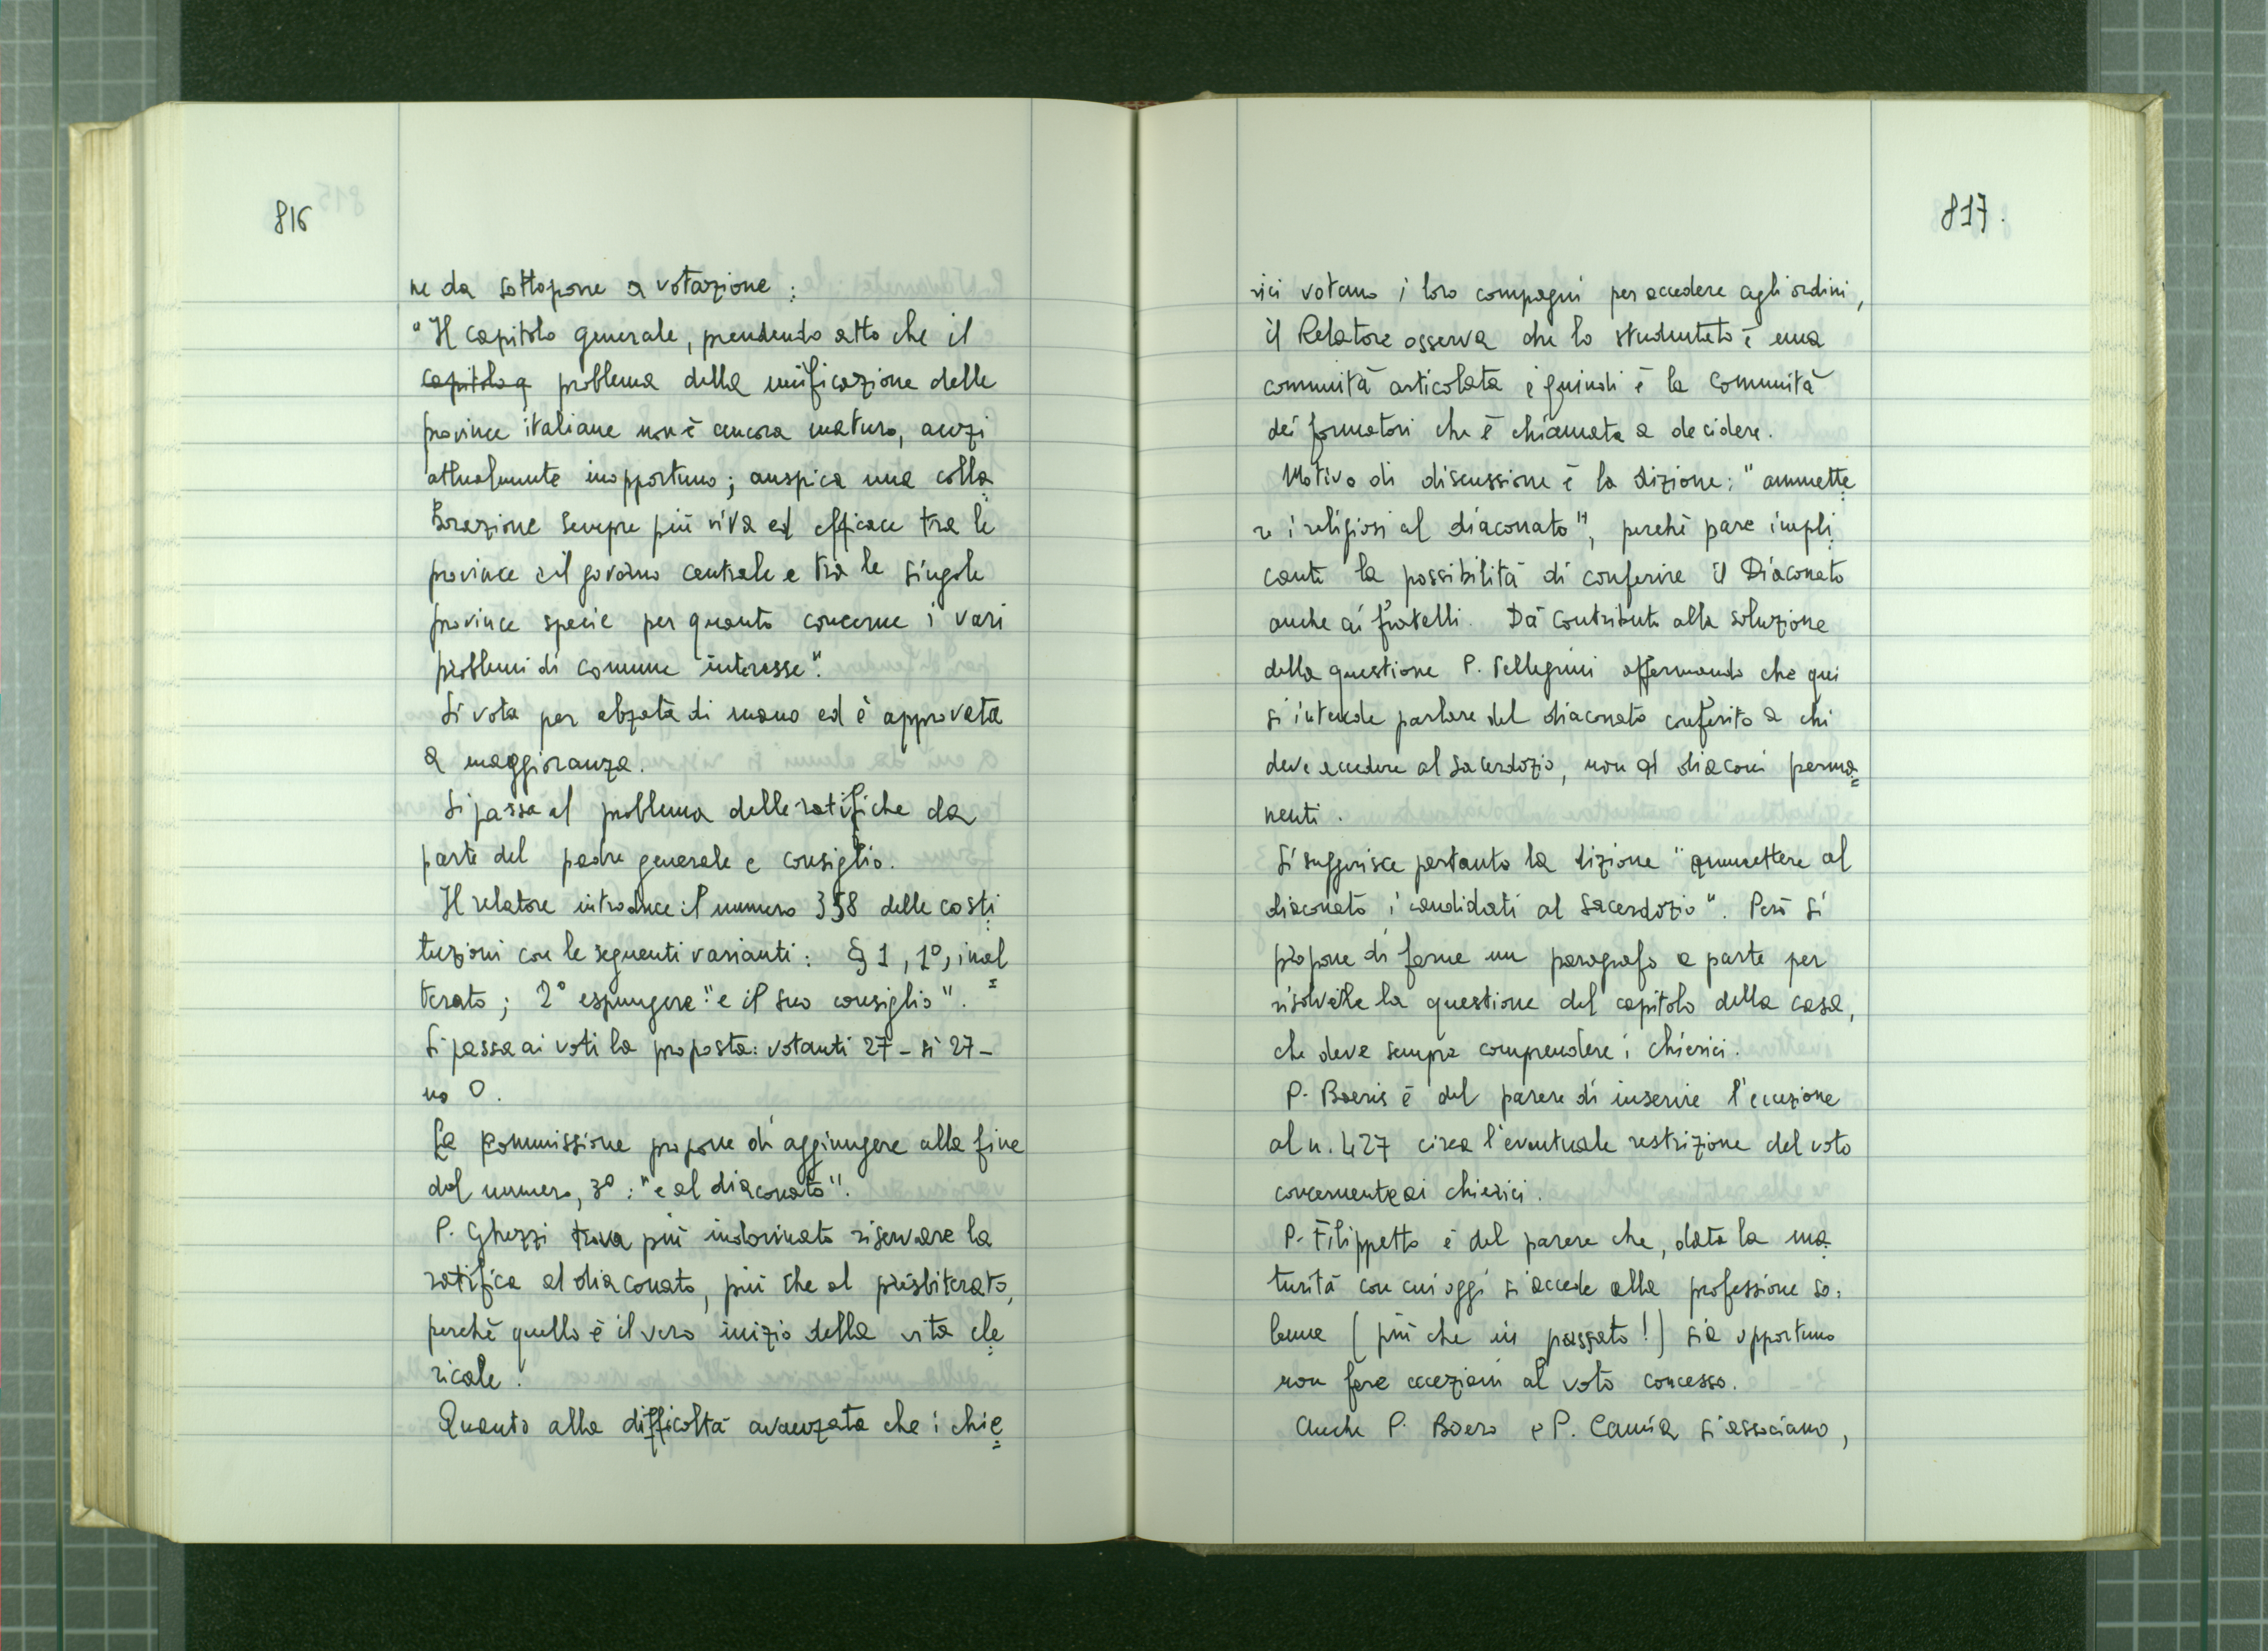 816
ne da sottoporre a votazione :
"Il capitolo generale, prendendo atto che il
capitolo q problema della unificazione delle
province italiane non è ancora maturo, anzi
attualmente inopportuno ; auspica una colla
borazione sempre più viva ed efficace tra le
province e il governo centrale e tra le singole
province specie per quanto concerne i vari
problemi di comune interesse".
Si vota per alzata di mano ed è approvata
a maggioranza.
Si passa al problema delle ratifiche da
parte del padre generale e consiglio.
Il relatore introduce il numero 358 delle costi
tuzioni con le seguenti varianti : § 1, 1°, inal
terato ; 2° espungere : "e il suo consiglio".
Si passa ai voti la proposta : votanti 27 - sì 27 -
no 0.
La commissione propone di aggiungere alla fine
del numero, 3° : "e al diaconato".
P. Ghezzi trova più indovinato riservare la
ratifica al diaconato, più che al presbiterato,
perchè quello è il vero inizio della vita cle
ricale.
Quanto alla difficoltà avanzata che i chie
817.
rici votano i loro compagni per accedere agli ordini,
il Relatore osserva che lo studentato è una
comunità articolata e quindi è la comunità
dei formatori che è chiamata a decidere.
Motivo di discussione è la dizione : "ammette
re i religiosi al diaconato", perchè pare impli
cante la possibilità di conferire il Diaconato
anche ai fratelli. Dà contributo alla soluzione
della questione P. Pellegrini affermando che qui
si intende parlare del diaconato conferito a chi
deve accedere al Sacerdozio, non ai diaconi perma=
nenti.
Si suggerisce pertanto la dizione "ammettere al
diaconato i candidati al Sacerdozio". Però si
propone di farne un paragrafo a parte per
risolvere la questione del capitolo della casa,
che deve sempre comprendere i chierici.
P. Boeris è del parere di inserire l'eccezione
al n. 427 circa l'eventuale restrizione del voto
concernente ai chierici.
P. Filippetto è del parere che, data la ma
turità con cui oggi si accede alla professione so=
lenne (più che in passato!) sia opportuno
non fare eccezioni al voto concesso.
Anche P. Boero e P. Camia si associano,